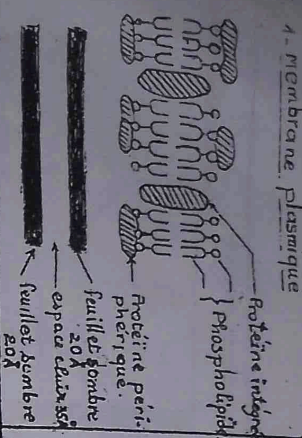 1- Membrane plasmique
Protéine intégré
Phospholipid
Protéine péri-
phérique.
feuillet sombre
20 Å
espace clair 35Å
feuillet sombre
20 Å